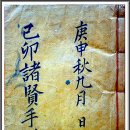 庚申秋九月 日
己卯諸賢手